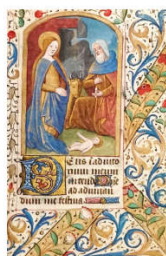 Deus in adiuto
rium meum
intende
ad adiuuan
dum me festina